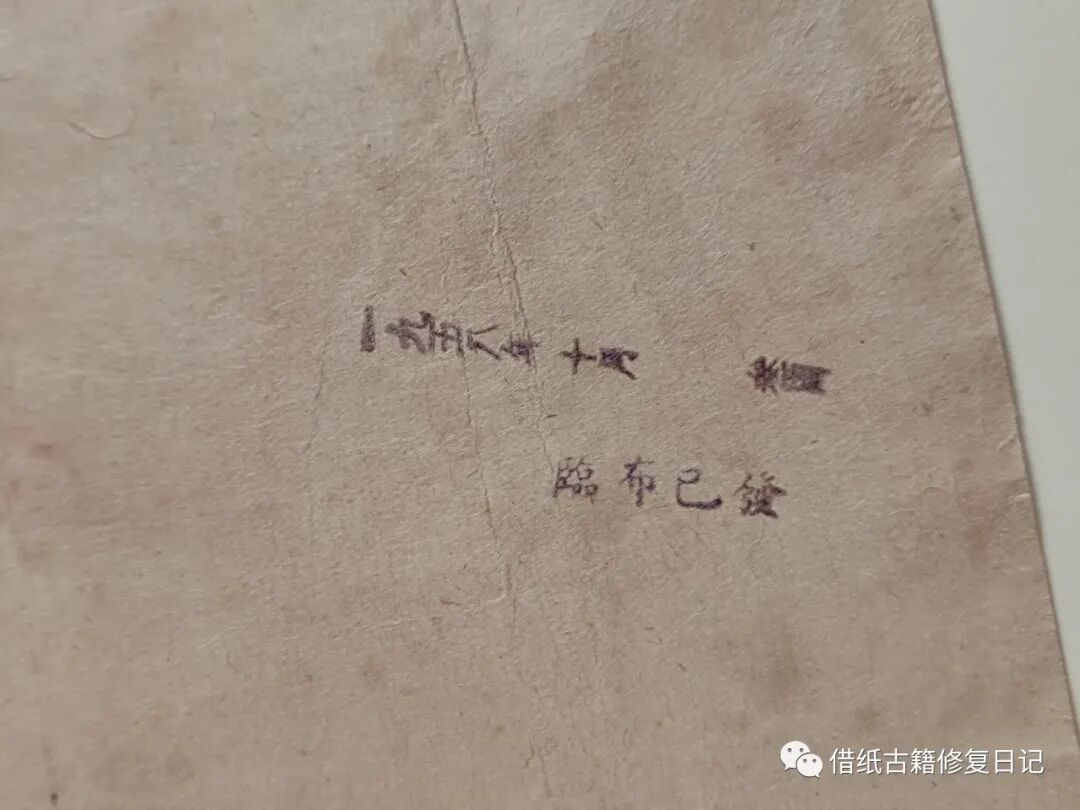 一九五八年 十月
臨布已發
借纸古籍修复日记